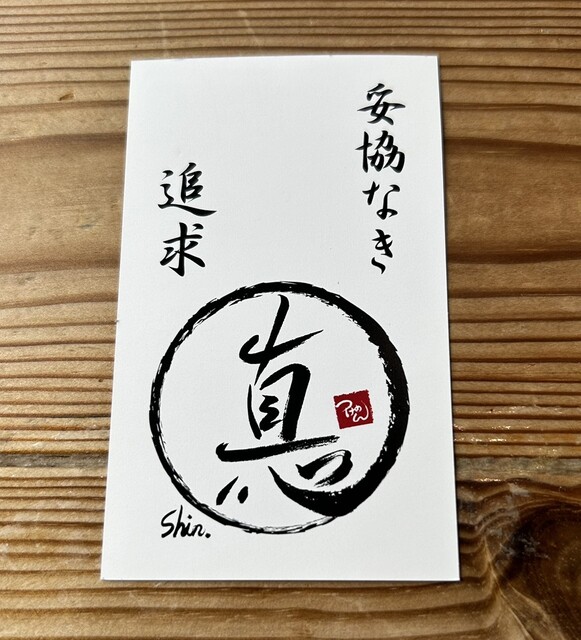 妥協なき
追求
真
つけめん
Shin.